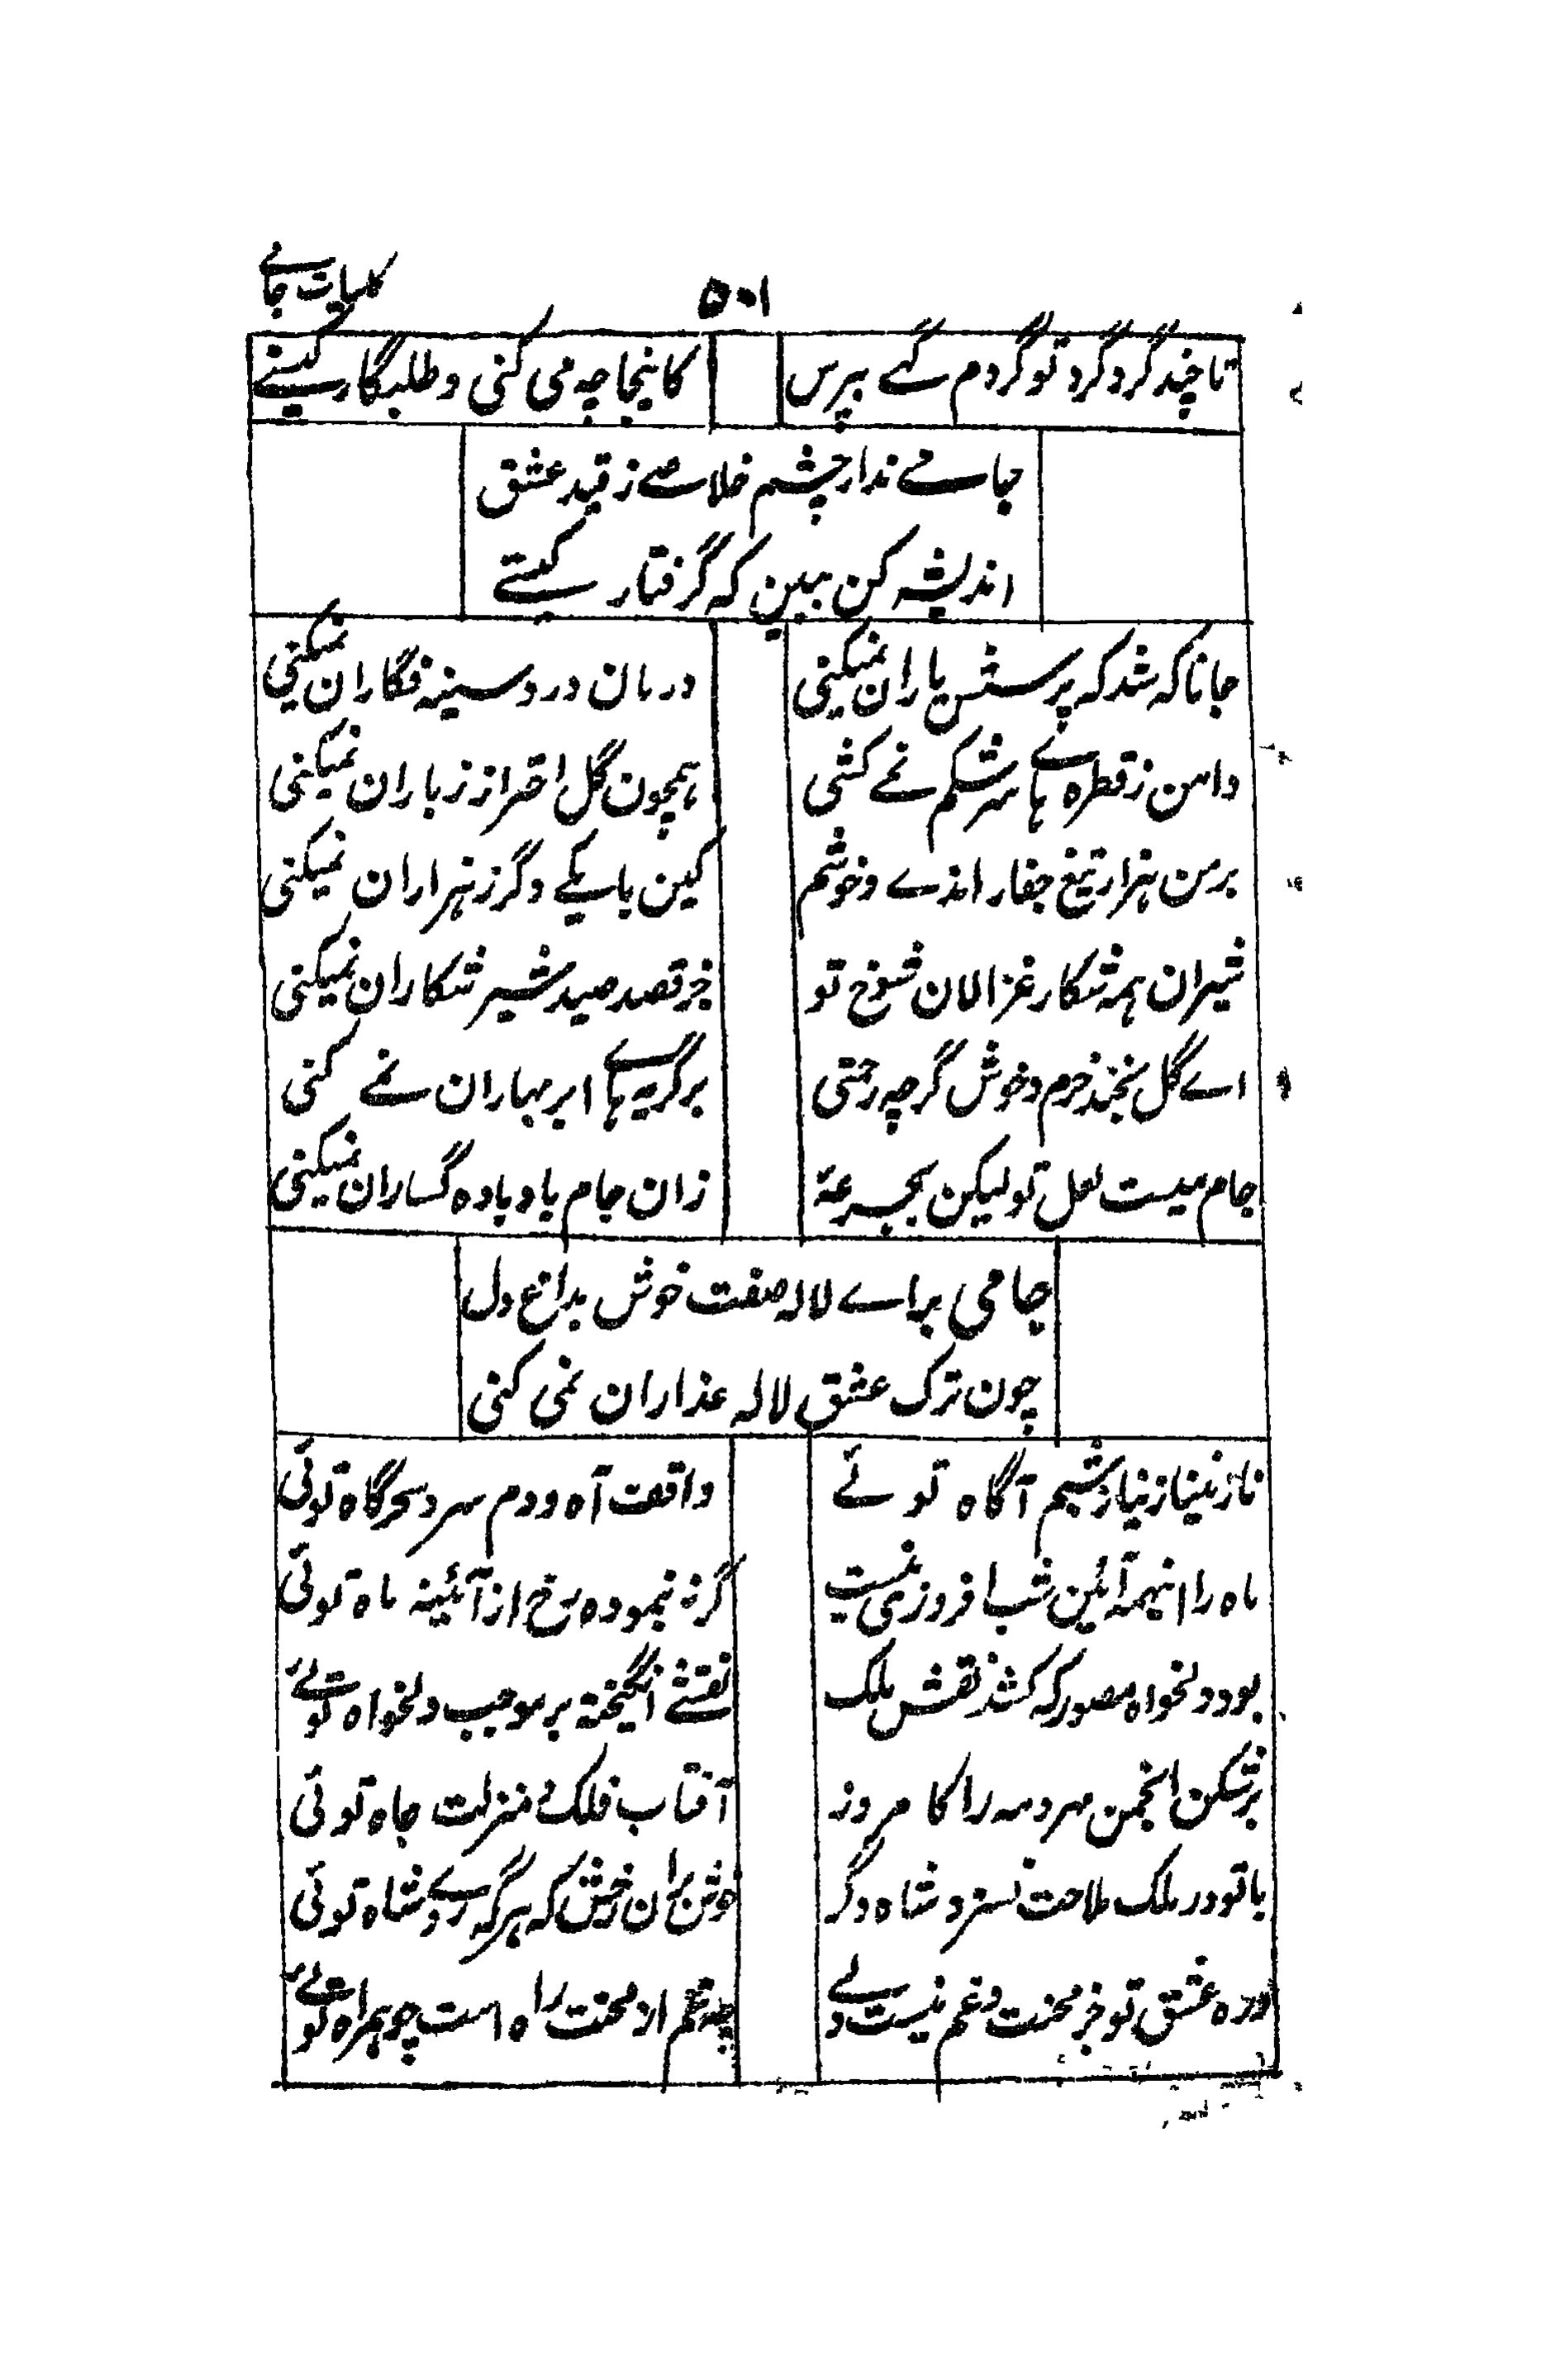 ۵۰۱
کلیات جامے
تا چند گرد گرد تو گردم گہے بپرس
کاینجا چه می کنی و طلبگار کیستے
جامے ندار چشم خلاصے ز قید عشق
اندیشه کن ببین که گرفتار کیستے
جانا که شد که پرسش یاران نمیکنی
درمان درد سینه فگاران نمیکنی
دامن ز قطرہ ہاے سرشکم نمے کشی
ہمچون گل احتراز ز باران نمیکنی
بر من ہزار تیغ جفا راندے و خوشم
کین با یکے دگر ز ہزاران نمیکنی
شیران ہمه شکار غزالان شوخ تو
جز قصد صید شیر شکاران نمیکنی
اے گل بخند خرم و خوش گرچه رحمتی
بر گریه ہاے ابر بہاران نمے کنی
جام میست لعل تو لیکن بجرعۂ
زان جام یاد بادہ گساران نمیکنی
جامی براے لاله صفت خوش بداغ دل
چون ترک عشق لاله عذاران نمی کنی
نازنینا ز نیاز شبم آگاہ توئے
واقف آہ و دم سرد سحرگاہ توئی
ماہ را اینہمه آئین شب افروزی نیست
گرنه نمودہ رخ از آئینه ماہ توئی
بود دلخواہ مصور که کشد نقش ملک
نقشے انگیخته بر موجب دلخواہ توئے
برشکن انجمن مہر و مه را کامروز
آفتاب فلک و منزلت جاہ توئی
با تو در ملک ملاحت نسزد شاہ دگر
خوش بران رخش که ہرگه روے شاہ توئی
در رہ عشق تو جز محنت و غم نیست ولے
چه غم از محنت راہ است چو ہمراہ توئے